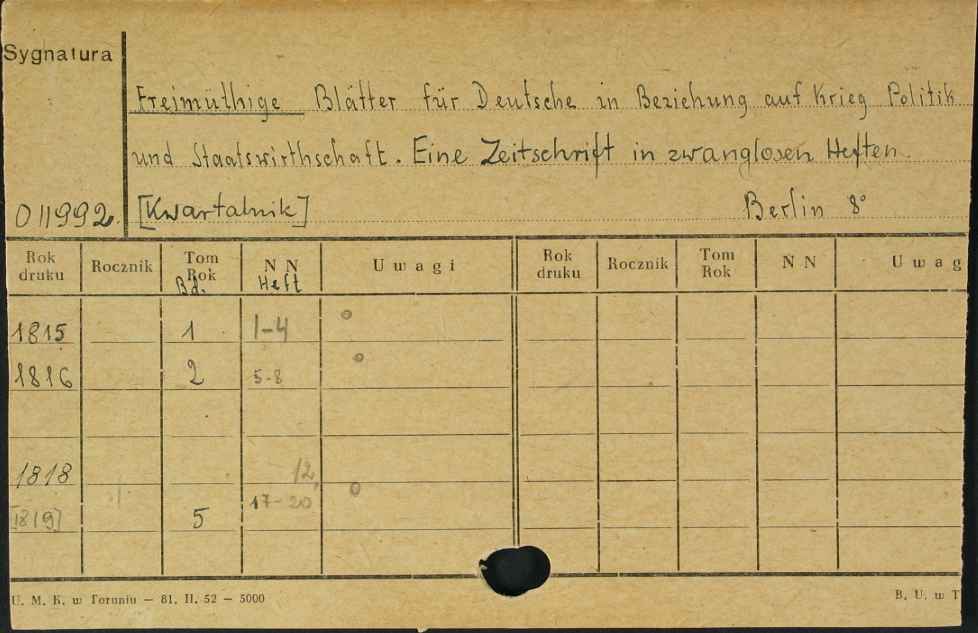 Sygnatura
Freimüthige Blätter für Deutsche in Beziehung auf Krieg Politik
und Staatswirthschaft. Eine Zeitschrift in zwanglosen Heften.
011992. [Kwartalnik] Berlin 8°
Rok druku Rocznik Tom Rok Bd. N N Heft Uwagi Rok druku Rocznik Tom Rok N N Uwag
1815 1 1-4
1816 2 5-8
1818 12,
17-20
[1819] 5
U. M. K. w Toruniu — 81. II. 52 — 5000 B. U. w T